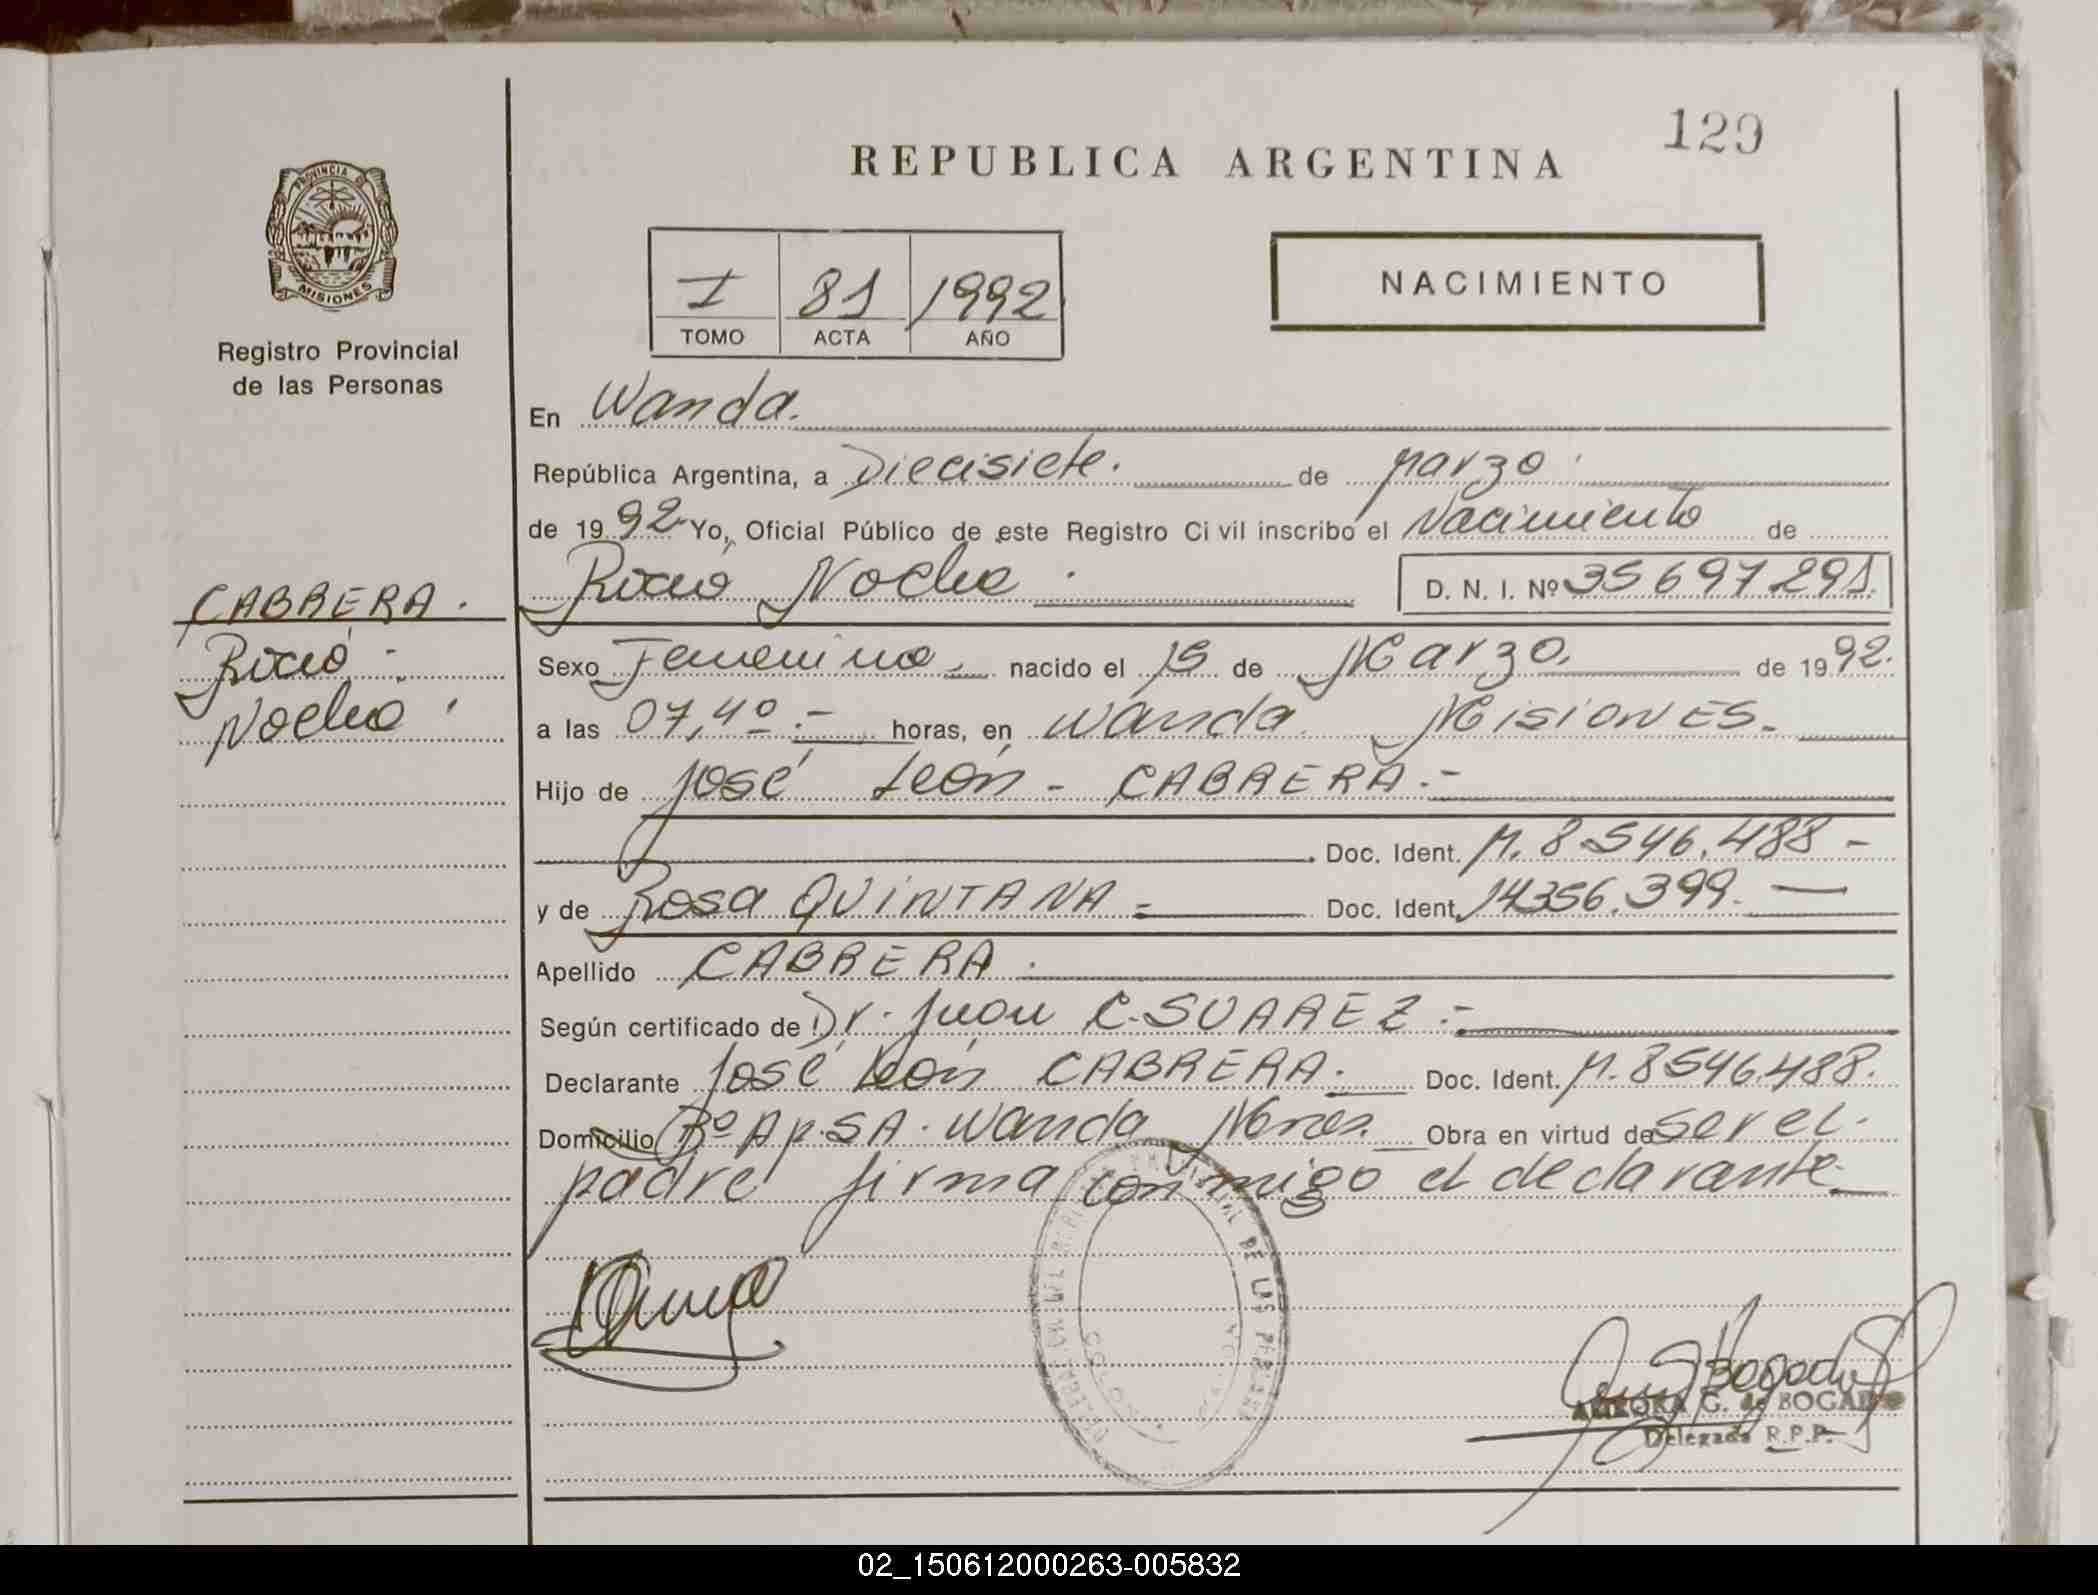 129
REPUBLICA ARGENTINA
PROVINCIA DE
MISIONES
Registro Provincial
de las Personas
I 81 1992
TOMO ACTA AÑO
NACIMIENTO
En Wanda.
República Argentina, a Diecisiete. de Marzo.
de 1992 Yo, Oficial Público de este Registro Civil inscribo el Nacimiento de
Rocío Noelia. D. N. I. Nº 35697.291.
CABRERA.
Rocío
Noelia
Sexo Femenino nacido el 15 de Marzo. de 1992.
a las 07,40.- horas, en Wanda Misiones.
Hijo de José León - CABRERA.-
Doc. Ident. M. 8546.488 -
y de Rosa QUINTANA = Doc. Ident. 14356.399. —
Apellido CABRERA.
Según certificado de Dr. Juan C. SUAREZ.-
Declarante José León CABRERA. Doc. Ident. M. 8546.488.
Domicilio Bº Ap. SA. Wanda Mnes. Obra en virtud de ser el
padre firma conmigo el declarante
DE LAS
G. de BOGADO
Delegada R.P.P.
02_150612000263-005832